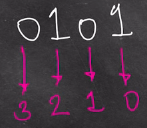 0101
3210